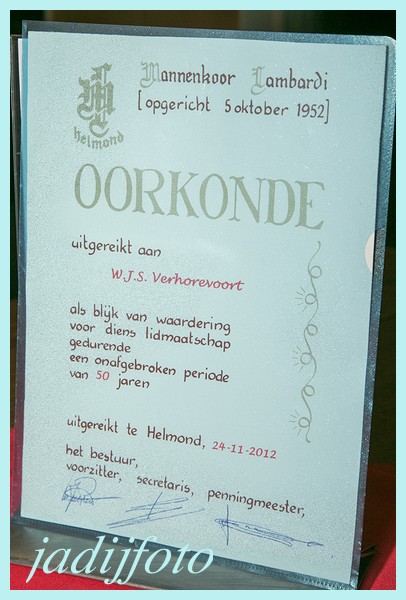 Mannenkoor Lambardi
[opgericht 5 oktober 1952]
Helmond
OORKONDE
uitgereikt aan
W.J.S. Verhorevoort
als blijk van waardering
voor diens lidmaatschap
gedurende
een onafgebroken periode
van 50 jaren
uitgereikt te Helmond, 24-11-2012
het bestuur,
voorzitter, secretaris, penningmeester,
jadijfoto